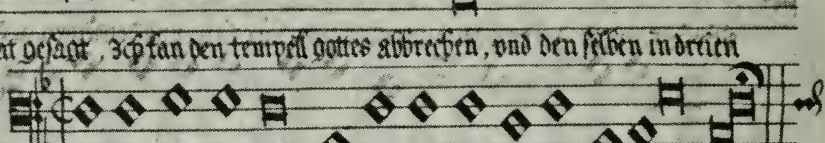 hat gesagt, Ich kan den tempell gottes abbrechen, vnd den selben in dreien